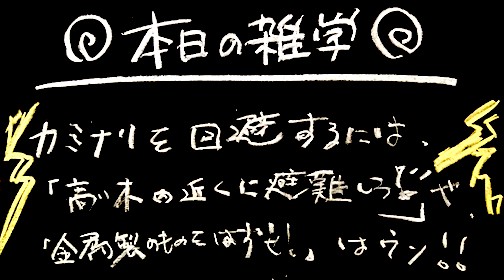 本日の雑学
カミナリを回避するには、
「高い木の近くに避難しろ!」や、
「金属製のものをはずせ!」はウソ!!